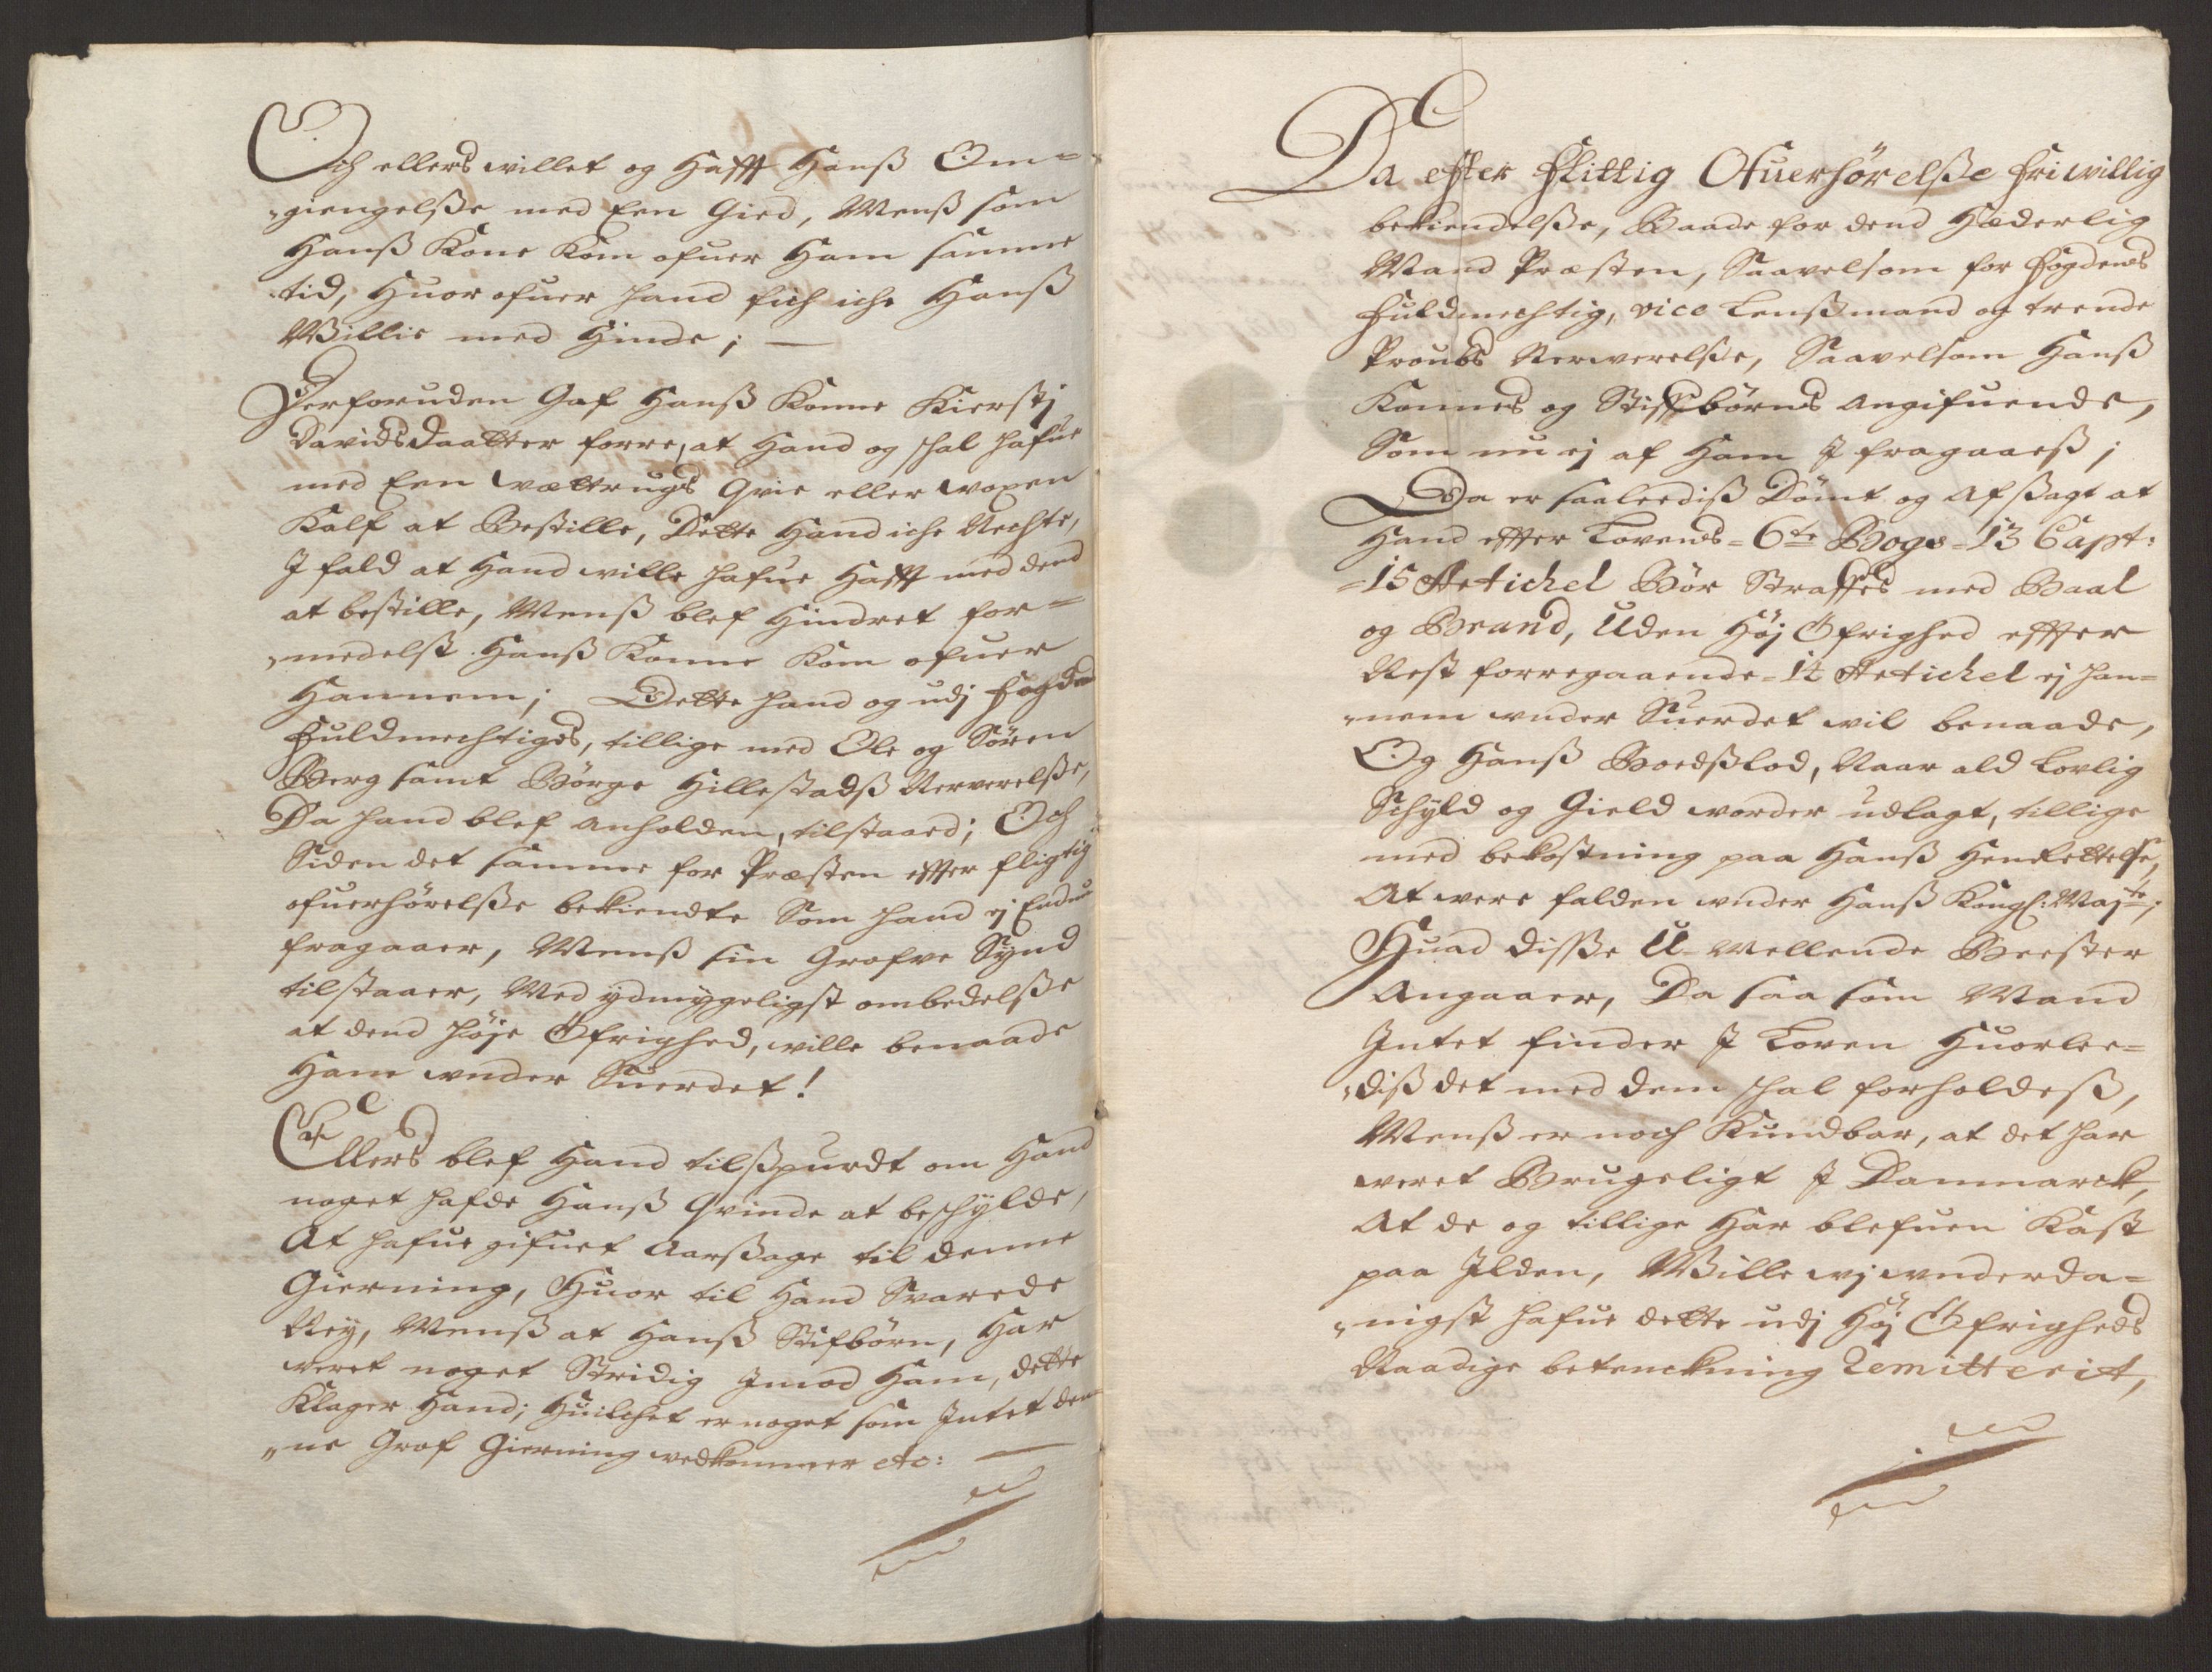 Och ellers willet og Hafft Hanß Om=
„giengelße med Een Gied, Menß som
Hanß Kone Kom ofuer Ham samme
tid, Huor ofuer hand fich iche Hanß
Willie med Hinde; —
Derforuden Gaf Hanß Konne Kierstj
Davidsdaatter forre, at Hand og schal hafue
med Een wættrugs Qvie eller woxen
Kalf at Bestille, Dette Hand iche Nechte,
J fald at Hand wille hafue Hafft med dend
at bestille, Menß blef Hindret for=
„medelst Hanß Konne Kom ofuer
Hannem; Dette hand og udj fogdens
Fuldmechtiges, tillige med Ole og Sören
Berg samt Börge Hillestadß Nerverelße,
Da hand blef anholden, tilstaaed; Och
Siden det samme for Præsten effter fligtig
ofuerhörelße bekiendte Som hand ej Endnu
fragaaer, Menß sin Grofve Synd
tilstaaer, Med ydmygeligst ombedelße
at dend höje Öfrighed, wille benaade
Ham wnder Suerdet!
Ellers blef Hand tilßpurdt om Hand
noget hafde Hanß Qvinde at beschylde,
At hafue gifuet Aarßage til denne
Gierning, Huor til Hand Svarede
Ney, Menß at Hanß Stifbörn, Har
veret noget Stridig Jmod Ham, dette
Klager Hand; Huilchet er noget som Jntet den=
„ne Grof Gierning vedkommer etc: —
Da efter Flittig Ofuerhörelße Friwillig
bekiendelße, Baade for dend Hæderlig
Mand Præsten, Saavelsom for fogdens
Fuldmechtig, vice Lenßmand og trende
Proubs Nerwerelße, Saavelsom Hanß
Konnes og Stiffbörns Angifuende,
Som nu ej af Ham J fragaaeß;
Da er saaleediß Dömt og Afßagt at
Hand effter Lovens=6te Bogs=13 Capt:
=15 Artichel Bör Straffes med Baal
og Brand, Uden Höj Öfrighed effter
Nest forregaaende=14 Artichel ej han=
„nem wnder Suerdet wil benaade,
Og Hanß Boedßlod, Naar ald Lovlig
Schyld og Gield worder udlagt, tillige
med bekostning paa Hanß Henrettelse,
At were falden wnder Hanß Kongl: Majte;
Huad disße U-Mellende Beester
Angaaer, Da saa som Mand
Jntet finder J Loven Huorlee=
„diß det med dem schal forholdeß,
Menß er noch Kundbar, at det har
weret Brugeligt J Danmarck,
At de og tillige Har blefuen Kast
paa Jlden, Wille wj wnderda=
„nigst hafue dette udj Höj Öfrigheds
Naadige betenckning Remitterit,